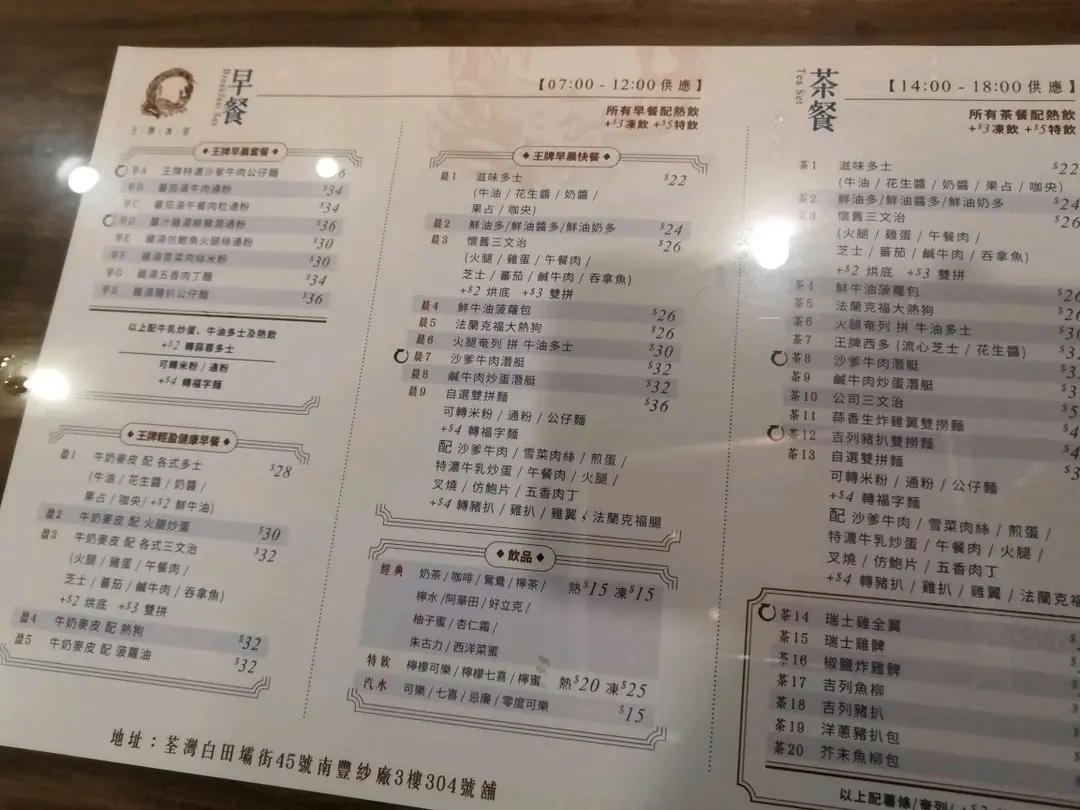 早餐
Breakfast Set
【07:00 - 12:00供應】
所有早餐配熱飲
+$3凍飲 +$5特飲
王牌早晨套餐
早A 王牌特濃沙爹牛肉公仔麵
早B 蕃茄湯牛肉通粉 $34
早C 蕃茄湯午餐肉粒通粉 $34
$36
早E 雞湯仿鮑魚火腿絲通粉 $30
早F 雞湯雪菜肉絲米粉 $30
早G 雞湯五香肉丁麵 $34
早H 雞湯豬扒公仔麵 $36
以上配牛乳炒蛋、牛油多士及熱飲
+$2 轉蒜蓉多士
可轉米粉 / 通粉
+$4 轉福字麵
王牌輕盈健康早餐
盈1 牛奶麥皮 配 各式多士 $28
(牛油 / 花生醬 / 奶醬 /
果占 / 咖央 / +$2 鮮牛油)
盈2 牛奶麥皮 配 火腿炒蛋 $30
盈3 牛奶麥皮 配 各式三文治 $32
(火腿 / 雞蛋 / 午餐肉 /
芝士 / 蕃茄 / 鹹牛肉 / 吞拿魚)
+$2 烘底 +$3 雙拼
盈4 牛奶麥皮 配 熱狗 $32
盈5 牛奶麥皮 配 菠蘿油 $32
王牌早晨快餐
晨1 滋味多士 $22
(牛油 / 花生醬 / 奶醬 /
果占 / 咖央)
晨2 鮮油多/鮮油醬多/鮮油奶多 $24
晨3 懷舊三文治 $26
(火腿 / 雞蛋 / 午餐肉 /
芝士 / 蕃茄 / 鹹牛肉 / 吞拿魚)
+$2 烘底 +$3 雙拼
晨4 鮮牛油菠蘿包 $26
晨5 法蘭克福大熱狗 $26
晨6 火腿奄列 拼 牛油多士 $30
晨7 沙爹牛肉潛艇 $32
晨8 鹹牛肉炒蛋潛艇 $32
晨9 自選雙拼麵 $36
可轉米粉 / 通粉 / 公仔麵
+$4 轉福字麵
配 沙爹牛肉 / 雪菜肉絲 / 煎蛋 /
特濃牛乳炒蛋 / 午餐肉 / 火腿 /
叉燒 / 仿鮑片 / 五香肉丁
+$4 轉豬扒 / 雞扒 / 雞翼 / 法蘭克福腸
飲品
經典 奶茶 / 咖啡 / 鴛鴦 / 檸茶 / 熱$15 凍$15
檸水 /阿華田 / 好立克 /
柚子蜜 / 杏仁霜 /
朱古力 / 西洋菜蜜
特飲 檸檬可樂 / 檸檬七喜 / 檸蜜 熱$20 凍$25
汽水 可樂 / 七喜 / 忌廉 / 零度可樂 $15
茶餐
Tea Set
【14:00 - 18:00供應】
所有茶餐配熱飲
+$3凍飲 +$5特飲
茶1 滋味多士 $22
(牛油 / 花生醬 / 奶醬 / 果占 / 咖央)
茶2 鮮油多/鮮油醬多/鮮油奶多 $24
茶3 懷舊三文治 $26
(火腿 / 雞蛋 / 午餐肉 /
芝士 / 蕃茄 / 鹹牛肉 / 吞拿魚)
+$2 烘底 +$3 雙拼
茶4 鮮牛油菠蘿包
茶5 法蘭克福大熱狗
茶6 火腿奄列 拼 牛油多士
茶7 王牌西多 (流心芝士 / 花生醬)
茶8 沙爹牛肉潛艇
茶9 鹹牛肉炒蛋潛艇
茶10 公司三文治
茶11 蒜香生炸雞翼雙撈麵
茶12 吉列豬扒雙撈麵
茶13 自選雙拼麵
可轉米粉 / 通粉 / 公仔麵
+$4 轉福字麵
配 沙爹牛肉 / 雪菜肉絲 / 煎蛋 /
特濃牛乳炒蛋 / 午餐肉 / 火腿 /
叉燒 / 仿鮑片 / 五香肉丁
+$4 轉豬扒 / 雞扒 / 雞翼 / 法蘭克福
茶14 瑞士雞全翼
茶15 瑞士雞髀
茶16 椒鹽炸雞髀
茶17 吉列魚柳
茶18 吉列豬扒
茶19 洋蔥豬扒包
茶20 芥末魚柳包
以上配薯條/奄列/
地址：荃灣白田壩街45號南豐紗廠3樓304號舖